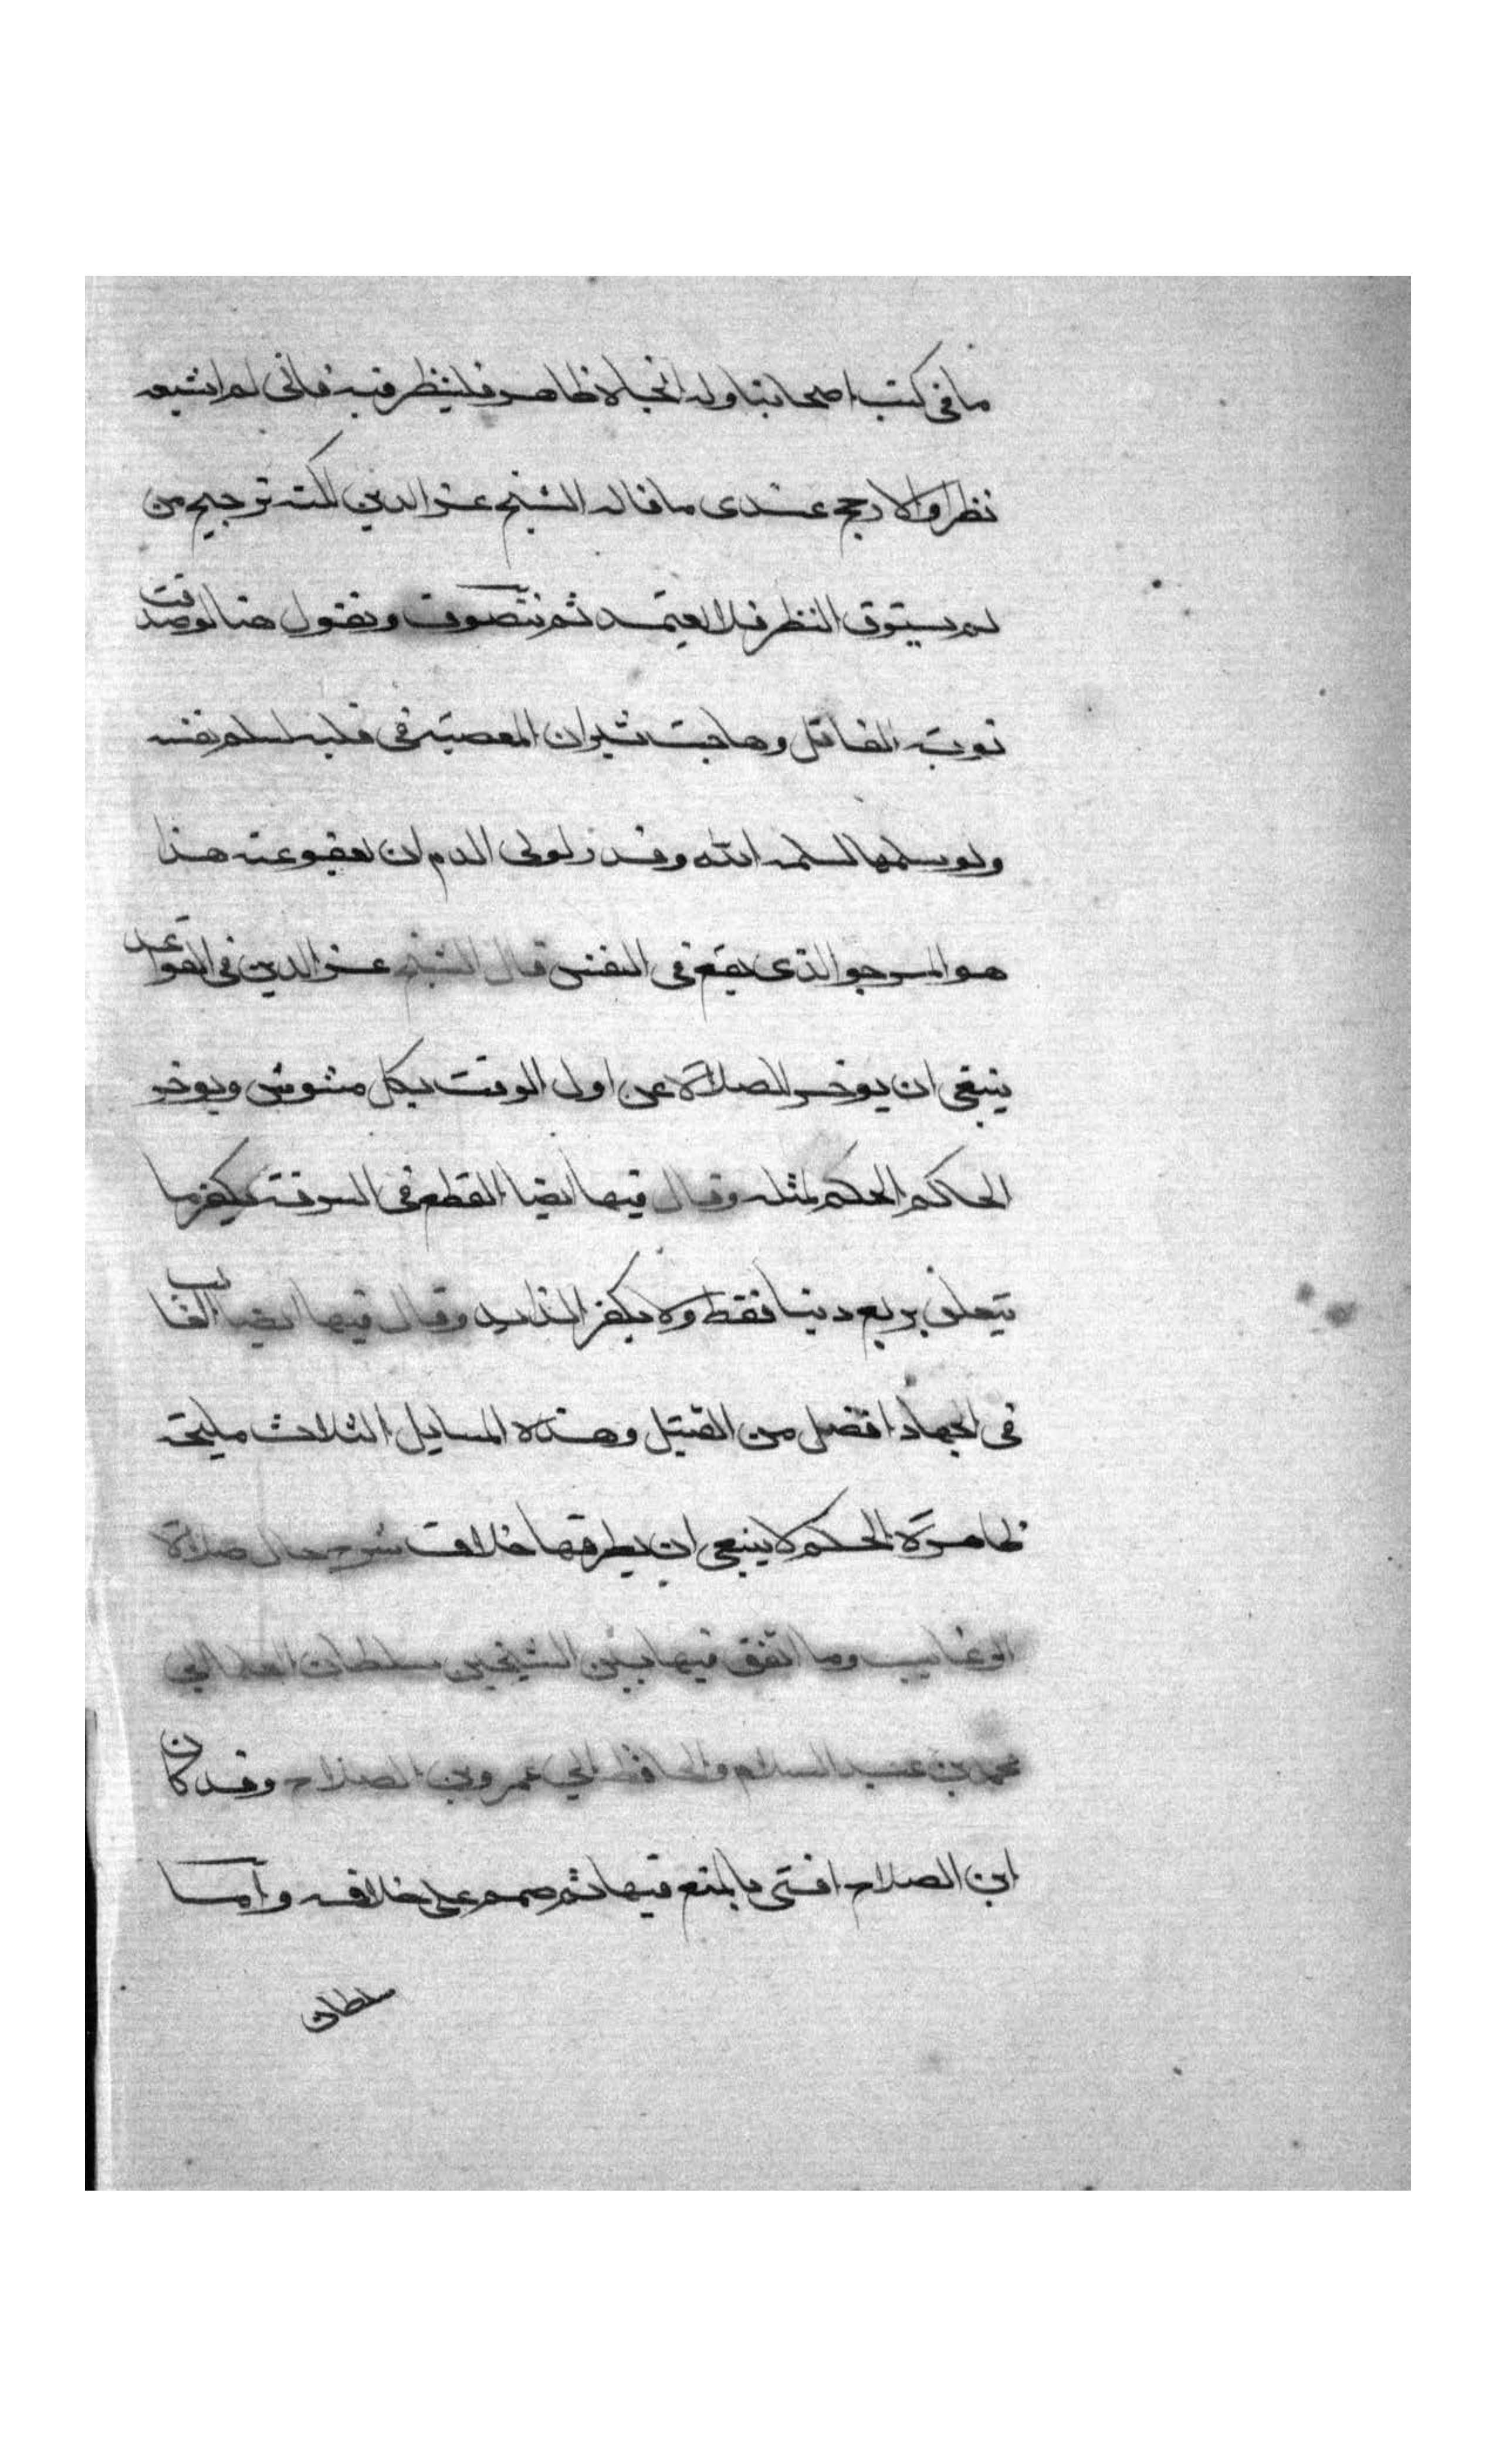 ما في كتب اصحابنا وله اتجاه ظاهر فلينظر فيه فاني لم اشبعه
نظرا والارجح عندي ما قاله الشيخ عز الدين لكنه ترجيح من
لم يستوف النظر فلا يعتمد ثم نتصوف ونقول هنا لو صدقت
توبة القاتل وهاجت نيران المعصية في قلبه لسلم نفسه
ولو سلمها لسلمه الله وقدر لولي الدم ان يعفو عنه هذا
هو المرجو الذي يقع في النفس قال الشيخ عز الدين في القواعد
ينبغي ان يوخر الصلاة عن اول الوقت بكل مشوش ويوخر
الحاكم الحكم لمثله وقال فيها ايضا القطع في السرقة يكفر ما
يتعلق بربع دينا فقط ولا يكفر الزايد وقال فيها ايضا الغالب
في الجهاد افضل من القتيل وهذه المسايل الثلاث مليحة
ظاهرة الحكم لا ينبغي ان يطرقها خلاف شرح حال صلاة
الرغايب وما اتفق فيها بين الشيخين سلطان العلما ابي
محمد بن عبد السلام والحافظ ابي عمرو بن الصلاح وقد كان
ابن الصلاح افتى بالمنع فيها ثم صمم على خلافه واما
سلطان